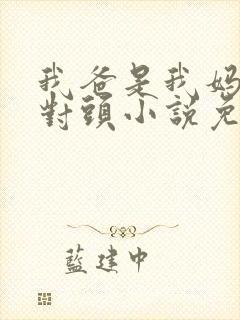 我爸是我媽
對頭小說免
藍建中